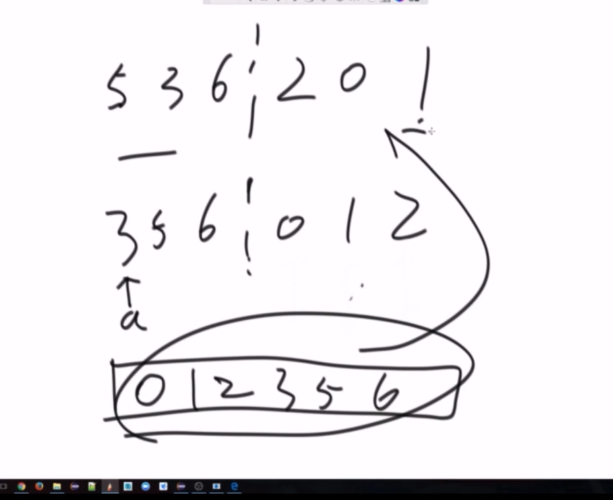 5 3 6 2 0 1
3 5 6 0 1 2
a
0 1 2 3 5 6